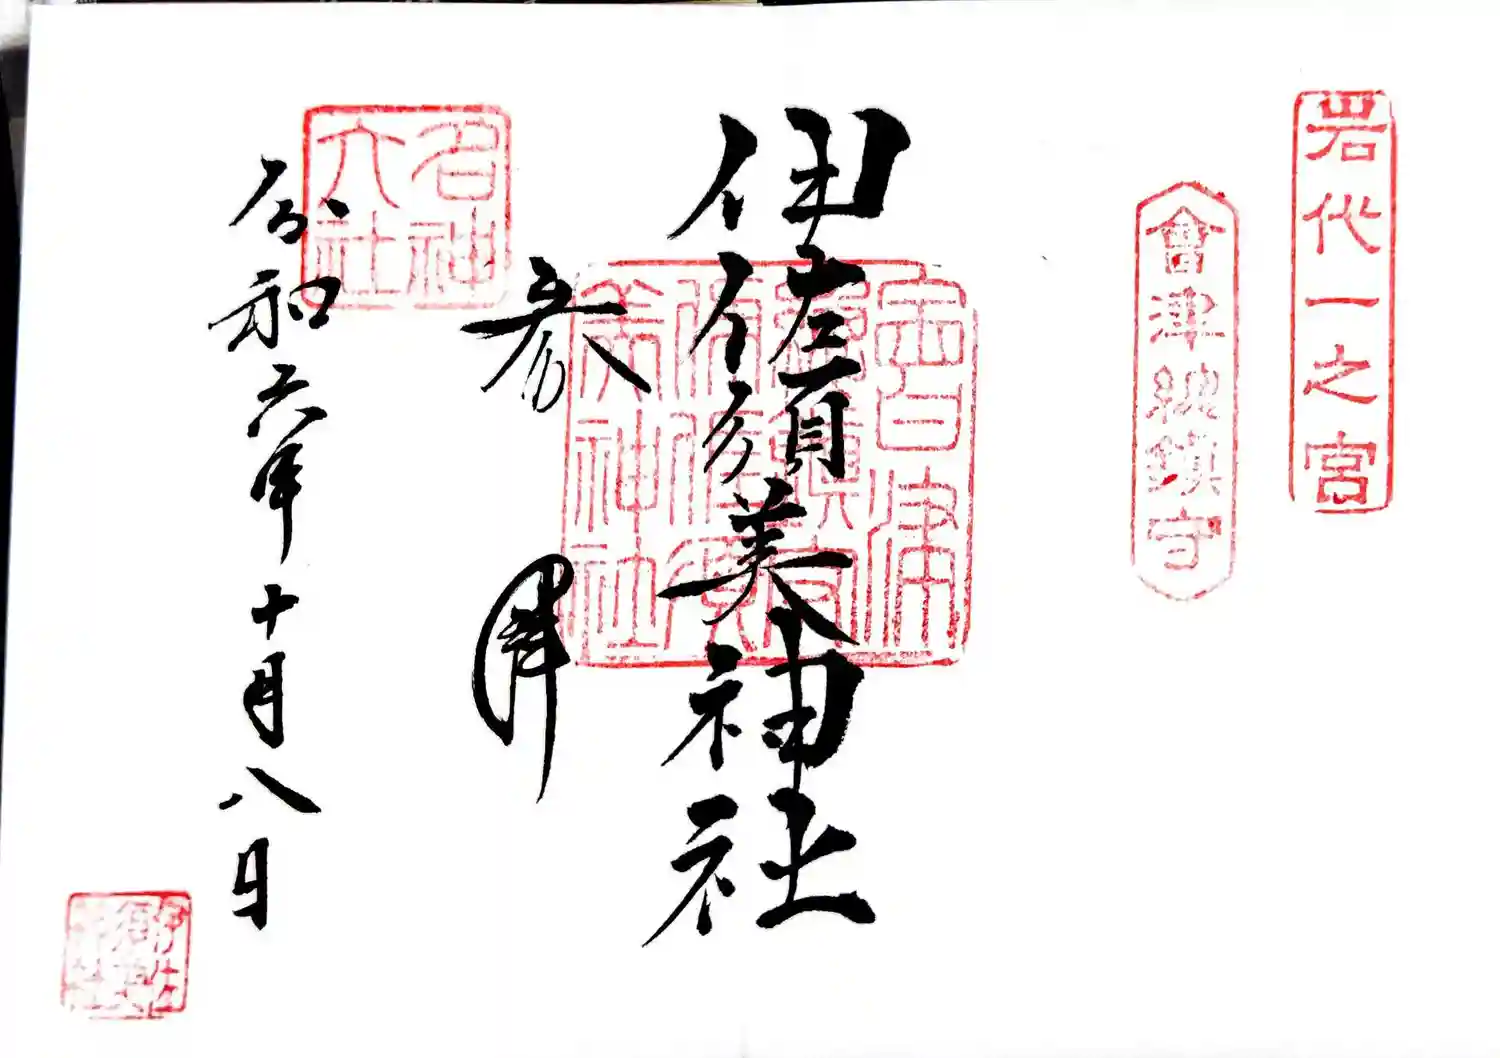 岩代一之宮
會津総鎮守
伊佐須美神社
會津
総鎮守
伊佐須
美神社
参拝
名神
大社
令和六年十月八日